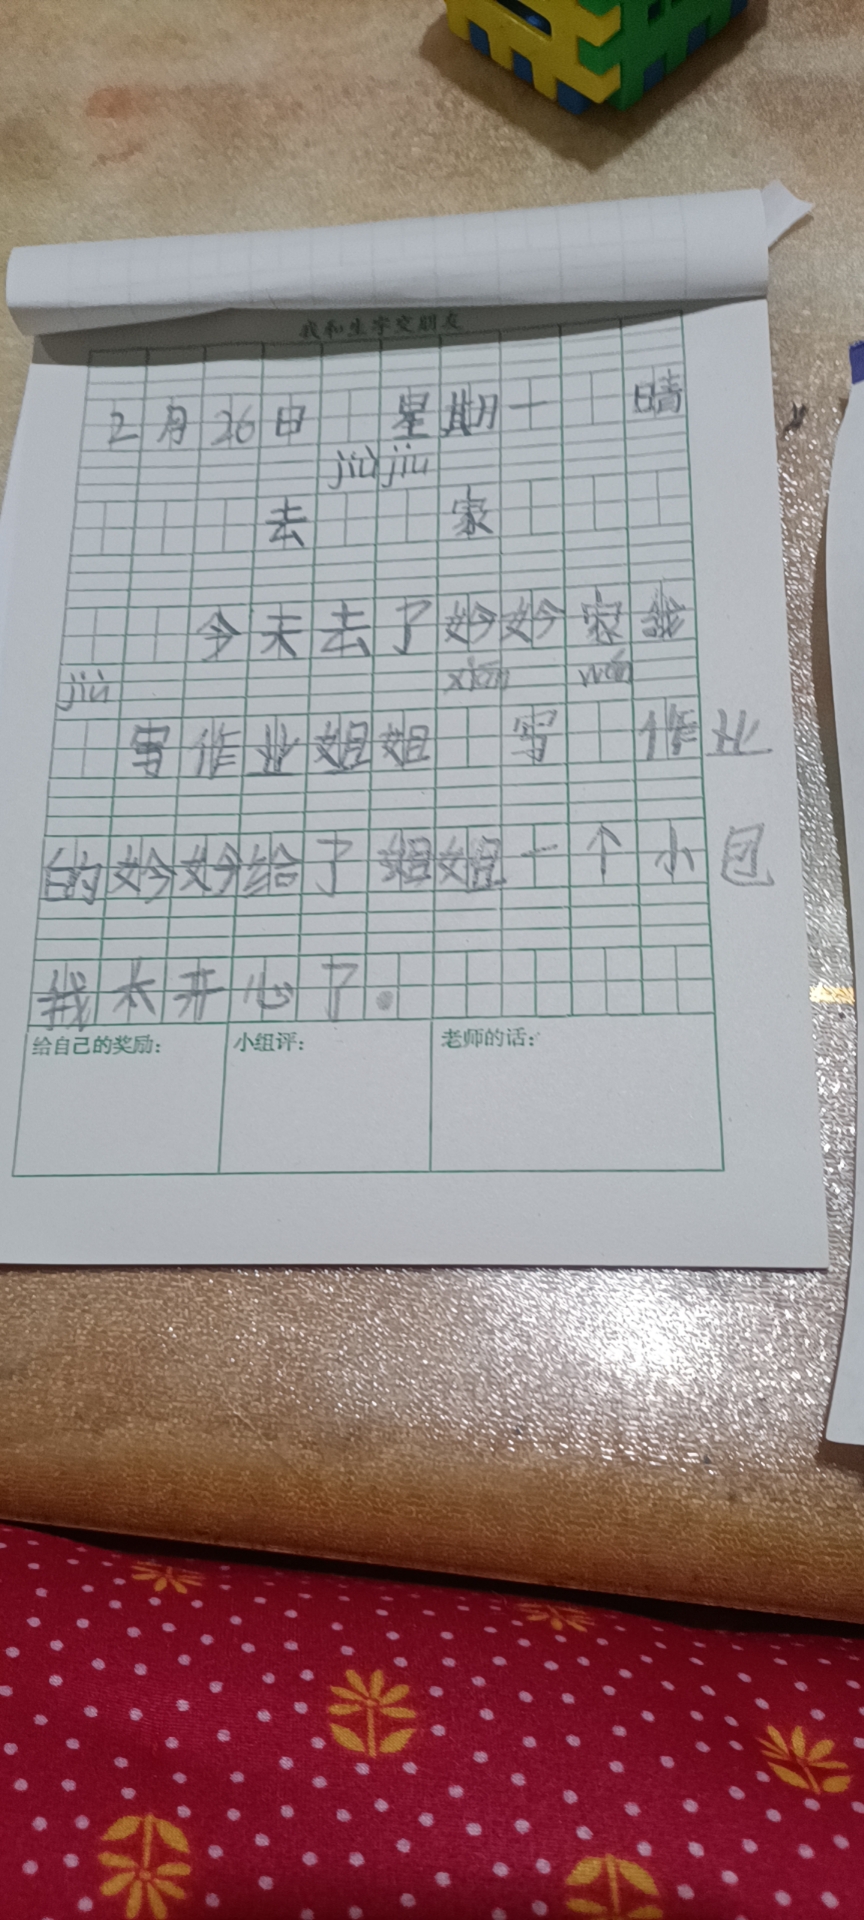 我和生字交朋友
2月26日 星期一 晴
jiù jiu
去 家
今天去了妗妗家我
jiù xiān wán
写作业姐姐 写 作业
的妗妗给了姐姐一个小包
我太开心了。
给自己的奖励: 小组评: 老师的话: